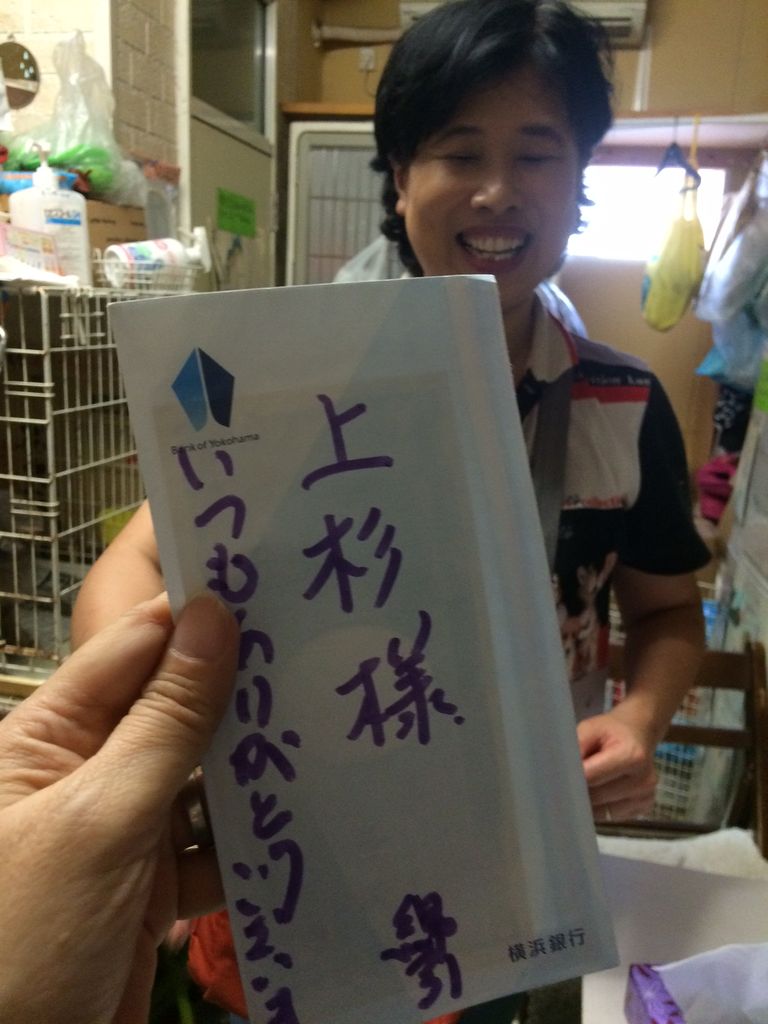 Bank of Yokohama
上杉様
いつもありがとうございま
横浜銀行